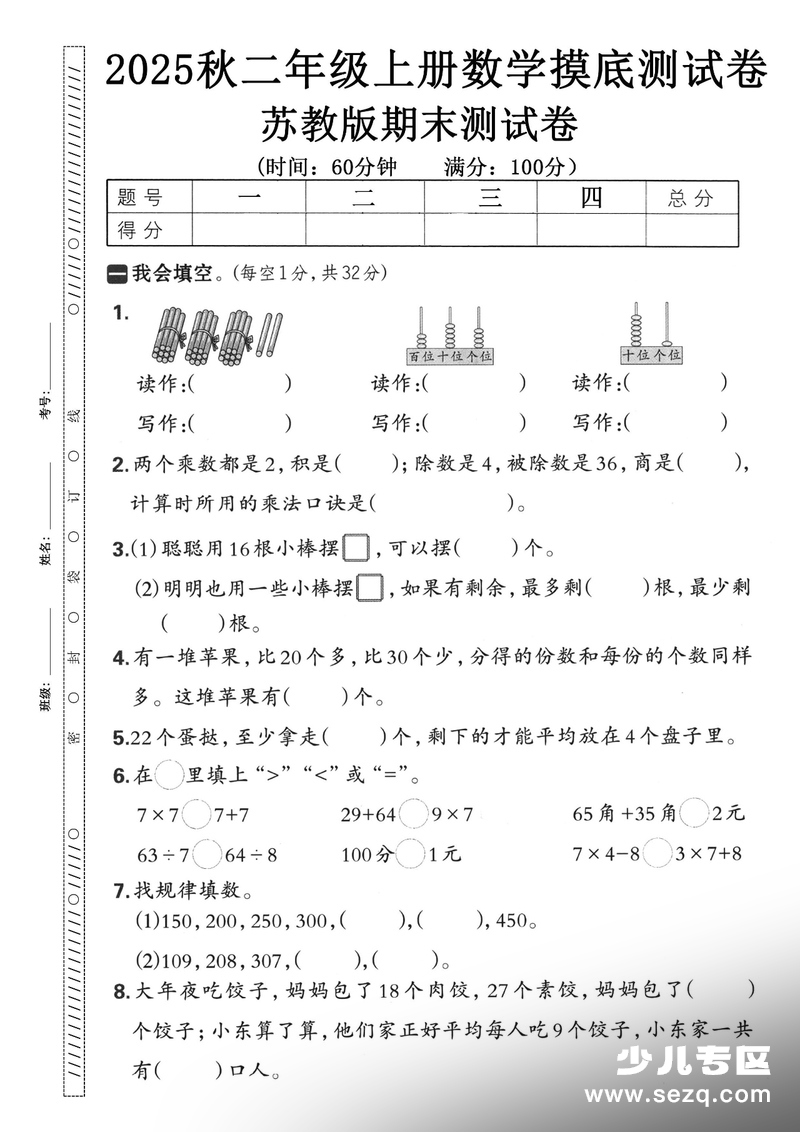 2025秋二年级上册数学摸底测试卷
苏教版期末测试卷
(时间：60分钟 满分：100分)
题号 一 二 三 四 总分
得分
一 我会填空。(每空1分,共32分)
1.
百位 十位 个位 十位 个位
读作:( ) 读作:( ) 读作:( )
写作:( ) 写作:( ) 写作:( )
2.两个乘数都是2,积是( );除数是4,被除数是36,商是( ),
计算时所用的乘法口诀是( )。
3.(1)聪聪用16根小棒摆□,可以摆( )个。
(2)明明也用一些小棒摆□,如果有剩余,最多剩( )根,最少剩
( )根。
4.有一堆苹果,比20个多,比30个少,分得的份数和每份的个数同样
多。这堆苹果有( )个。
5.22个蛋挞,至少拿走( )个,剩下的才能平均放在4个盘子里。
6.在○里填上“>”“<”或“=”。
7×7○7+7 29+64○9×7 65角+35角○2元
63÷7○64÷8 100分○1元 7×4-8○3×7+8
7.找规律填数。
(1)150,200,250,300,( ),( ),450。
(2)109,208,307,( ),( )。
8.大年夜吃饺子,妈妈包了18个肉饺,27个素饺,妈妈包了( )
个饺子;小东算了算,他们家正好平均每人吃9个饺子,小东家一共
有( )口人。
考号:
姓名:
班级:
密○封○袋○订○线
少儿专区
www.sezq.com